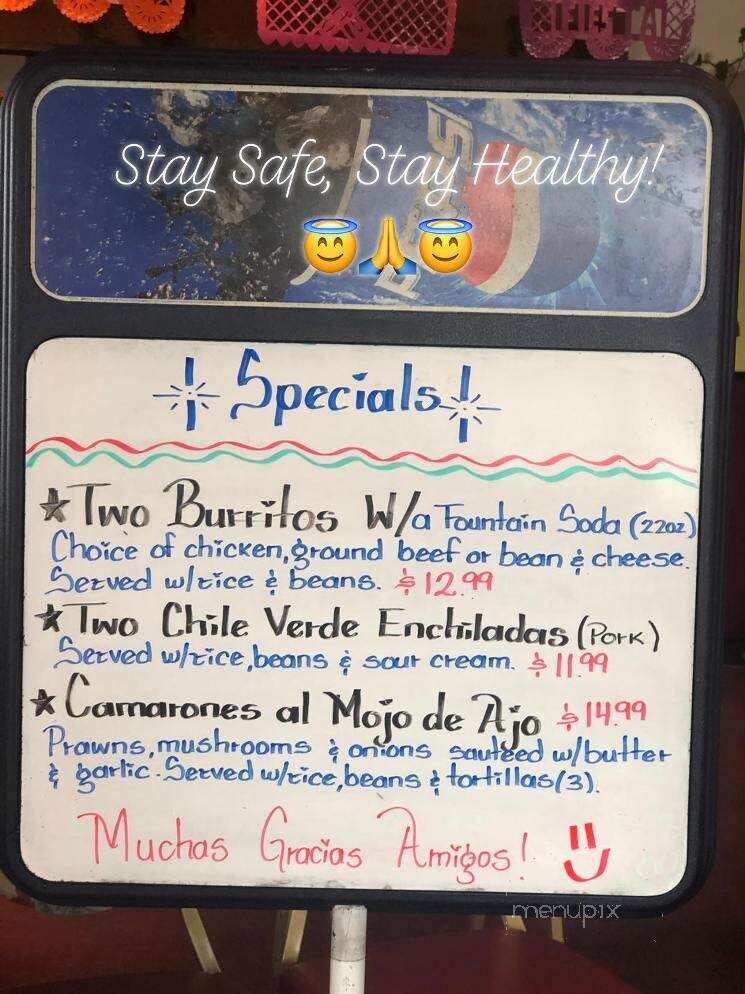 FIESTA
Stay Safe, Stay Healthy!
😇🙏😇
Specials
★Two Burritos W/a Fountain Soda (22oz)
Choice of chicken, ground beef or bean & cheese.
Served w/rice & beans. $12.99
★Two Chile Verde Enchiladas (Pork)
Served w/rice, beans & sour cream. $11.99
★Camarones al Mojo de Ajo $14.99
Prawns, mushrooms & onions sauteed w/butter
& garlic. Served w/rice, beans & tortillas(3).
Muchas Gracias Amigos!
menupix